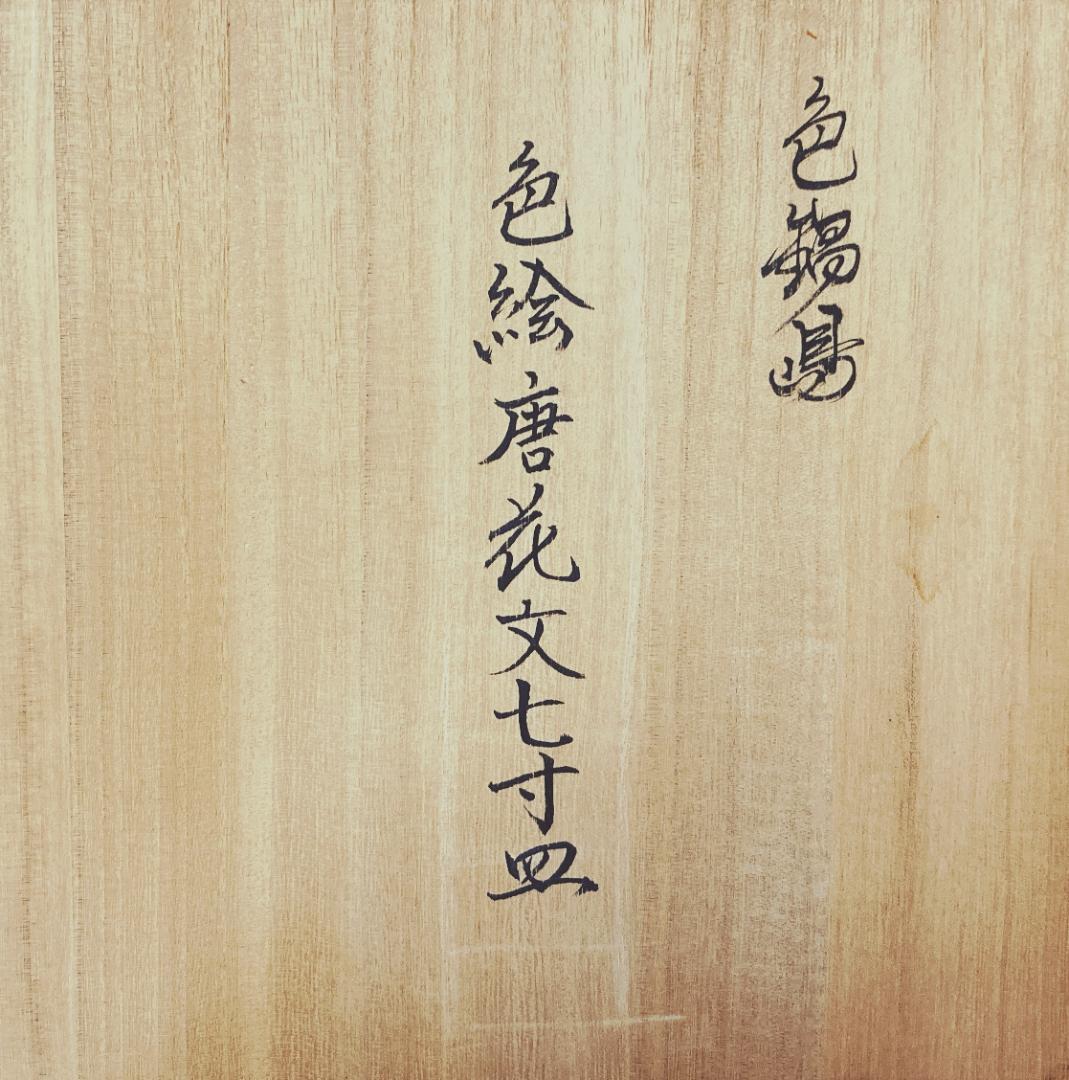 色鍋嶋
色絵唐花文七寸皿